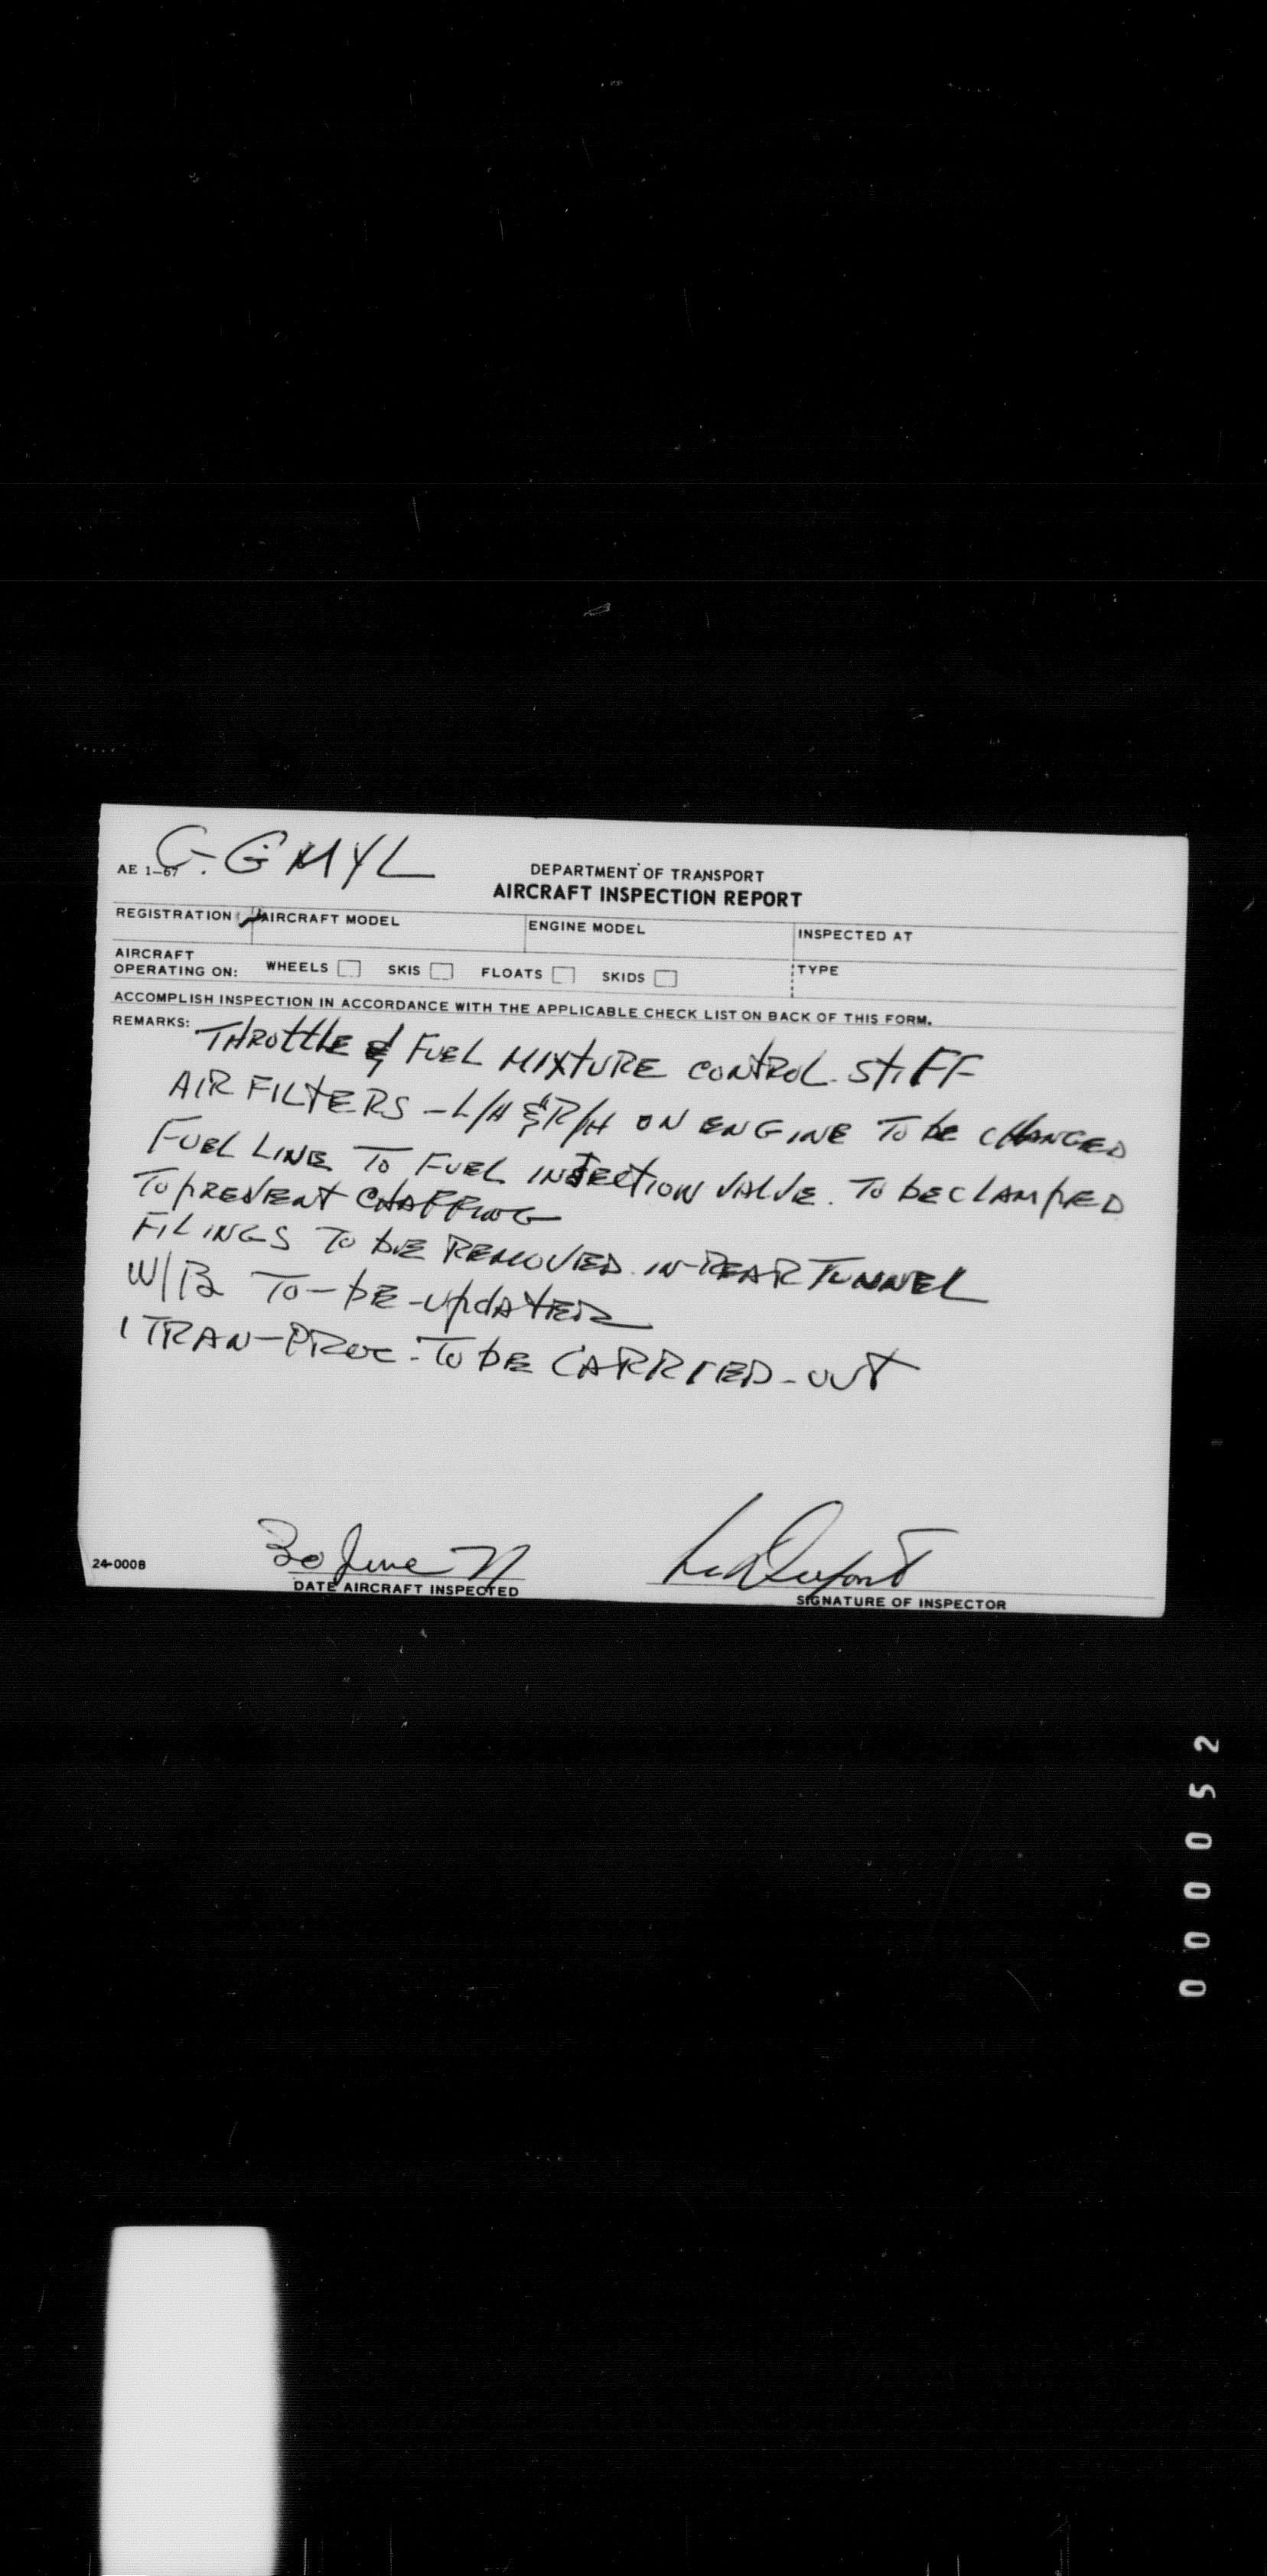 C-GMYL
AE 1-67
DEPARTMENT OF TRANSPORT
AIRCRAFT INSPECTION REPORT
REGISTRATION AIRCRAFT MODEL ENGINE MODEL INSPECTED AT
AIRCRAFT
OPERATING ON: WHEELS SKIS FLOATS SKIDS TYPE
ACCOMPLISH INSPECTION IN ACCORDANCE WITH THE APPLICABLE CHECK LIST ON BACK OF THIS FORM.
REMARKS: THROttLE & FUEL MIXTURE CONTROL. StiFF
AIR FILTERS - L/H & R/H ON ENGINE To be CHANGED
FUEL LINE TO FUEL INJECTION VALVE. To be CLAMPED
To PREVENT CHAFFING
FILINGS To bE REMOVED. IN-REAR TUNNEL
W/B To-bE-UpdATED
1 TRAN-PROC. To bE CARRIED-OUT
30 June 77
DATE AIRCRAFT INSPECTED
Dupont
SIGNATURE OF INSPECTOR
24-0008
000052